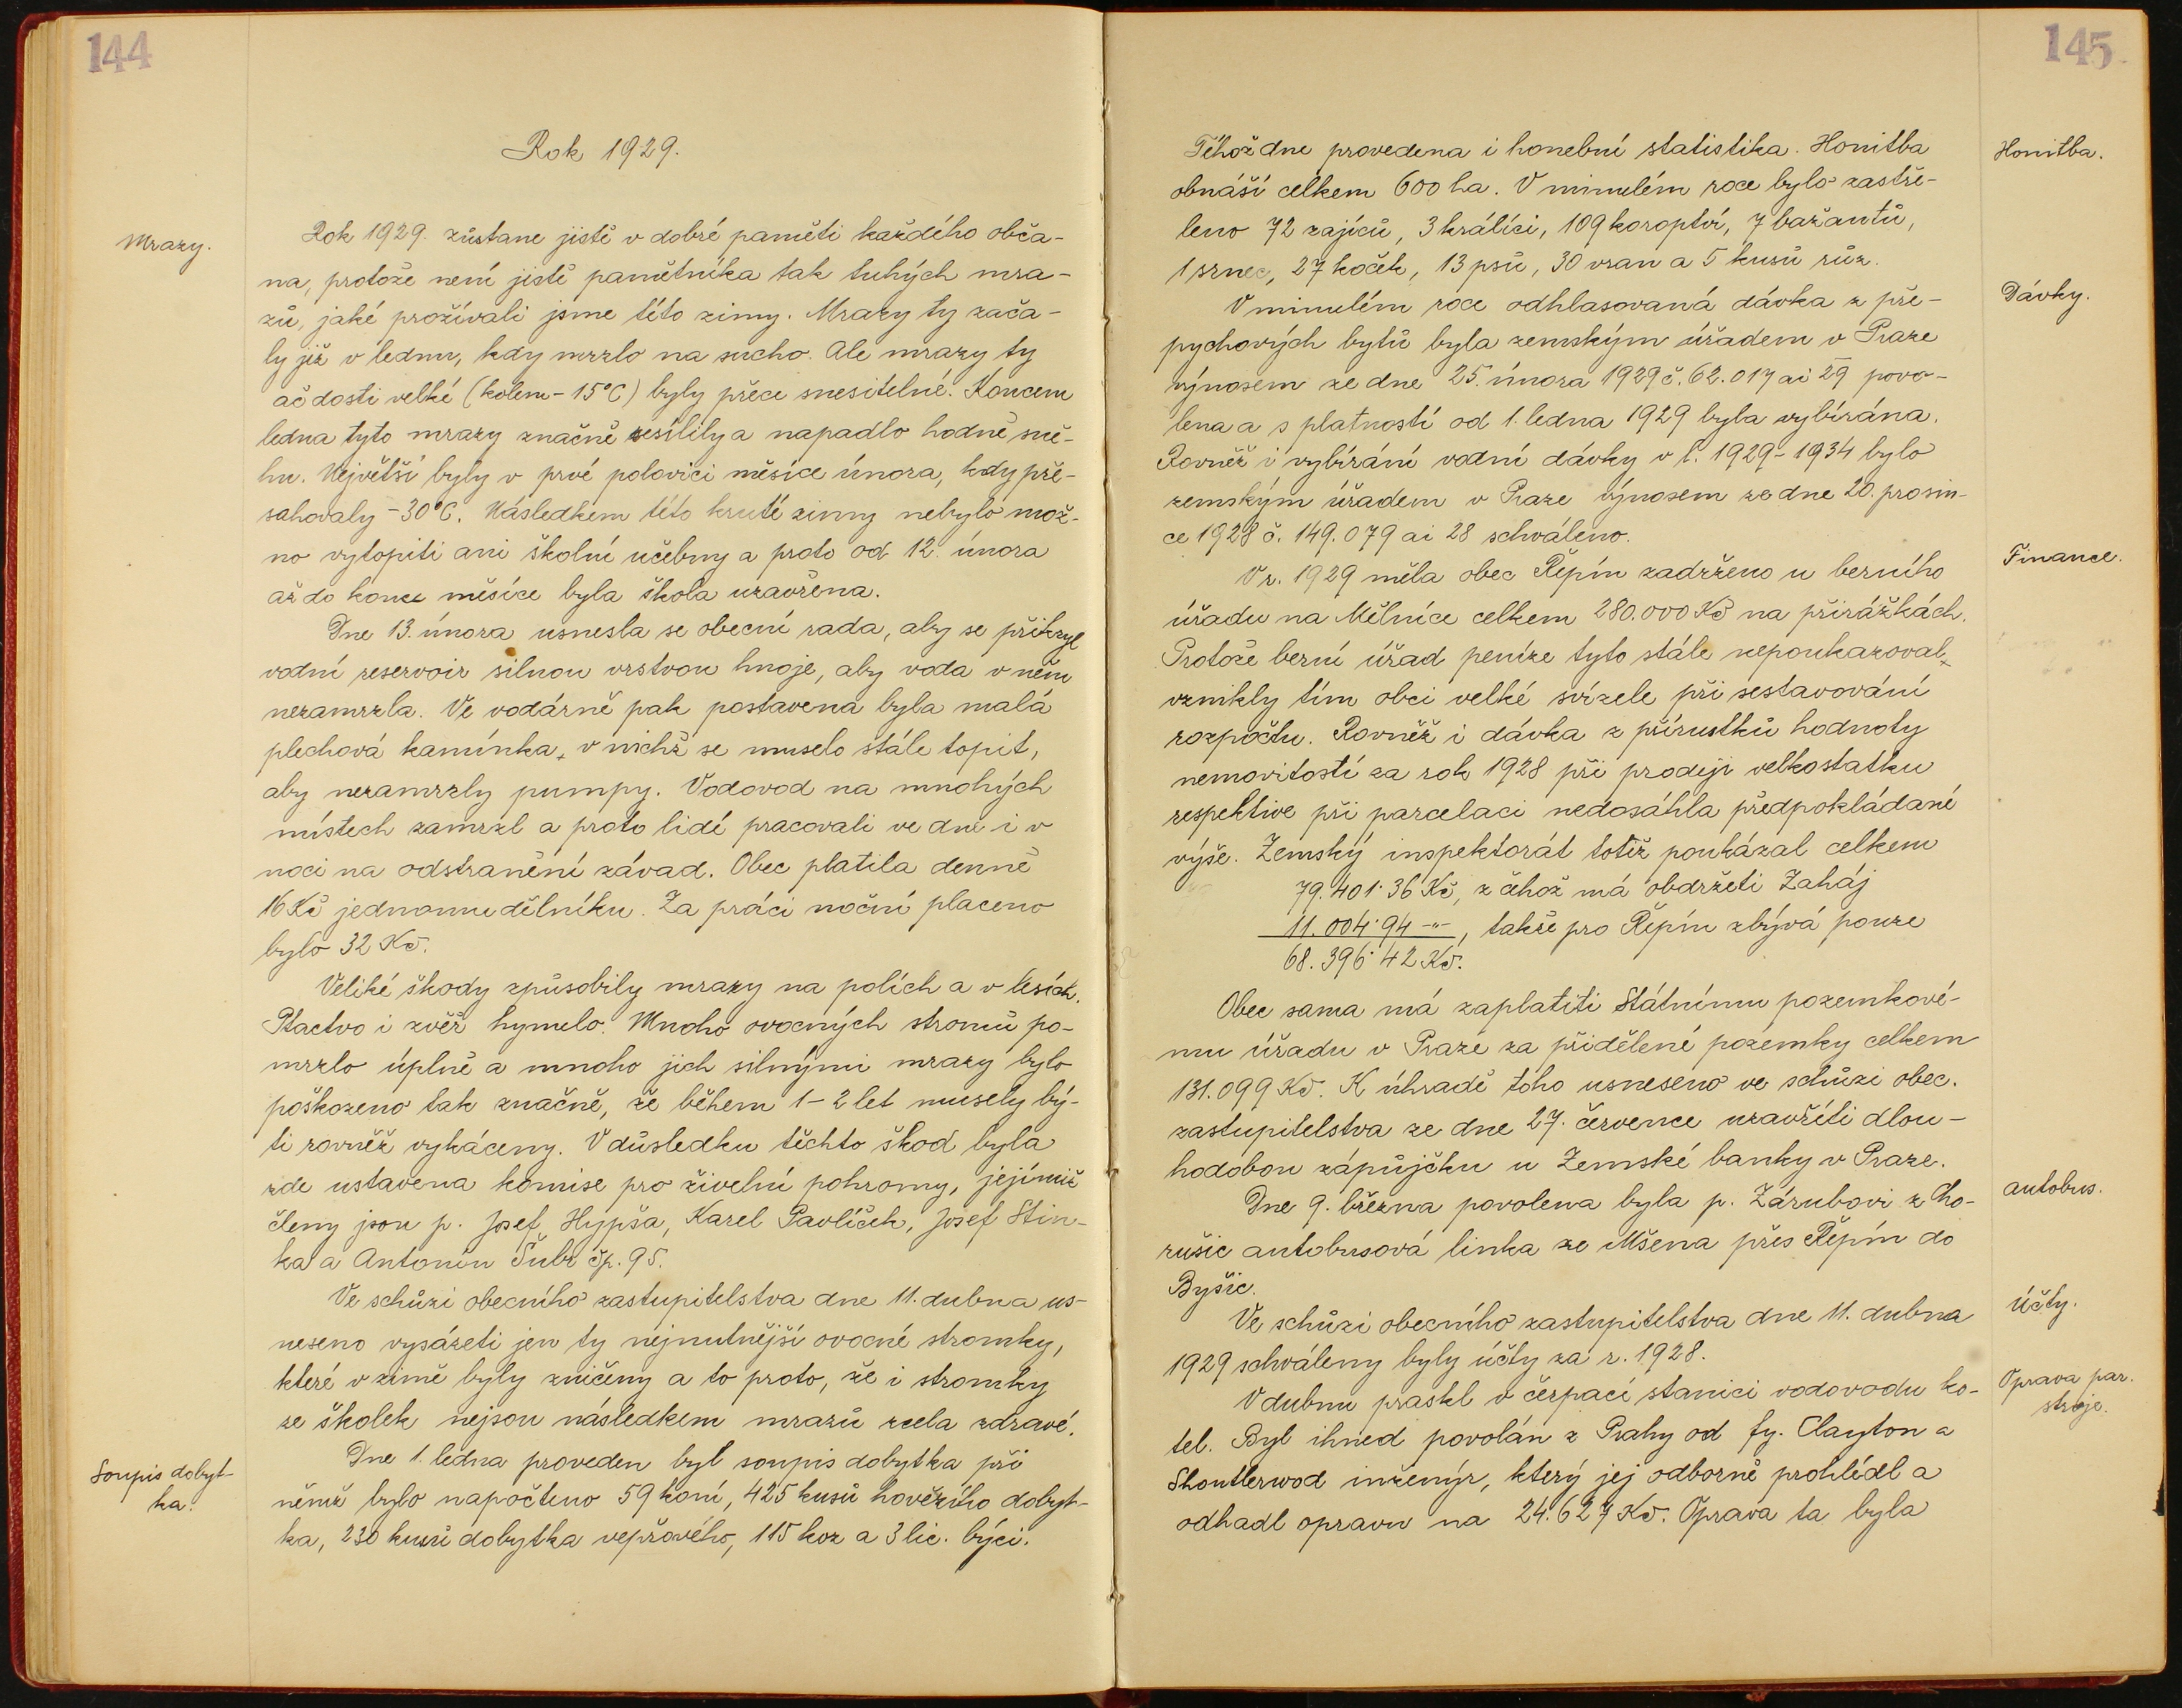 144
Rok 1929.
Mrazy.
Rok 1929. zůstane jistě v dobré paměti každého obča-
na, protože není jistě pamětníka tak tuhých mra-
zů, jaké prožívali jsme této zimy. Mrazy ty zača-
ly již v lednu, kdy mrzlo na sucho. Ale mrazy ty
ač dosti velké (kolem -15°C) byly přece snesitelné. Koncem
ledna tyto mrazy značně zesílily a napadlo hodně sně-
hu. Největší byly v prvé polovici měsíce února, kdy pře-
sahovaly -30°C. Následkem této kruté zimy nebylo mož-
no vytopiti ani školní učebny a proto od 12. února
až do konce měsíce byla škola uzavřena.
Dne 13. února usnesla se obecní rada, aby se přikryl
vodní reservoir silnou vrstvou hnoje, aby voda v něm
nezamrzla. Ve vodárně pak postavena byla malá
plechová kamínka, v nichž se muselo stále topit,
aby nezamrzly pumpy. Vodovod na mnohých
místech zamrzl a proto lidé pracovali ve dne i v
noci na odstranění závad. Obec platila denně
16 Kč jednomu dělníku. Za práci noční placeno
bylo 32 Kč.
Veliké škody způsobily mrazy na polích a v lesích.
Ptactvo i zvěř hynulo. Mnoho ovocných stromů po-
mrzlo úplně a mnoho jich silnými mrazy bylo
poškozeno tak značně, že během 1-2 let musely bý-
ti rovněž vykáceny. V důsledku těchto škod byla
zde ustavena komise pro živelní pohromy, jejímiž
členy jsou p. Josef Hypša, Karel Pavlíček, Josef Stin-
ka a Antonín Šubr čp. 95.
Ve schůzi obecního zastupitelstva dne 11. dubna us-
neseno vysázeti jen ty nejnutnější ovocné stromky,
které v zimě byly zničeny a to proto, že i stromky
ze školek nejsou následkem mrazů zcela zdravé.
Soupis dobyt-
ka.
Dne 1. ledna proveden byl soupis dobytka při
němž bylo napočteno 59 koní, 425 kusů hovězího dobyt-
ka, 230 kusů dobytka vepřového, 115 koz a 3 lic. býci.
145
Honitba.
Téhož dne provedena i honební statistika. Honitba
obnáší celkem 600 ha. V minulém roce bylo zastře-
leno 72 zajíců, 3 králíci, 109 koroptví, 7 bažantů,
1 srnec, 27 koček, 13 psů, 30 vran a 5 kusů růz.
Dávky.
V minulém roce odhlasovaná dávka z pře-
pychových bytů byla zemským úřadem v Praze
výnosem ze dne 25. února 1929 č. 62.017 ai 29 povo-
lena a s platností od 1. ledna 1929 byla vybírána.
Rovněž i vybírání vodní dávky v l. 1929-1934 bylo
zemským úřadem v Praze výnosem ze dne 20. prosin-
ce 1928 č. 149.079 ai 28 schváleno.
Finance.
V r. 1929 měla obec Řepín zadrženo u berního
úřadu na Mělníce celkem 280.000 Kč na přirážkách.
Protože berní úřad peníze tyto stále nepoukazoval,
vznikly tím obci velké svízele při sestavování
rozpočtu. Rovněž i dávka z přírustků hodnoty
nemovitostí za rok 1928 při prodeji velkostatku
respektive při parcelaci nedosáhla předpokládané
výše. Zemský inspektorát totiž poukázal celkem
79.401·36 Kč, z čehož má obdržeti Zaháj
11.004·94 -"-, takže pro Řepín zbývá pouze
68.396·42 Kč.
Obec sama má zaplatiti Státnímu pozemkové-
mu úřadu v Praze za přidělené pozemky celkem
131.099 Kč. K úhradě toho usneseno ve schůzi obec.
zastupitelstva ze dne 27. července uzavříti dlou-
hodobou zápůjčku u Zemské banky v Praze.
autobus.
Dne 9. března povolena byla p. Zárubovi z Cho-
rušic autobusová linka ze Mšena přes Řepín do
Byšic.
Účty.
Ve schůzi obecního zastupitelstva dne 11. dubna
1929 schváleny byly účty za r. 1928.
Oprava par.
stroje.
V dubnu praskl v čerpací stanici vodovodu ko-
tel. Byl ihned povolán z Prahy od fy. Clayton a
Shoutlerwod inženýr, který jej odborně prohlédl a
odhadl opravu na 24.627 Kč. Oprava ta byla